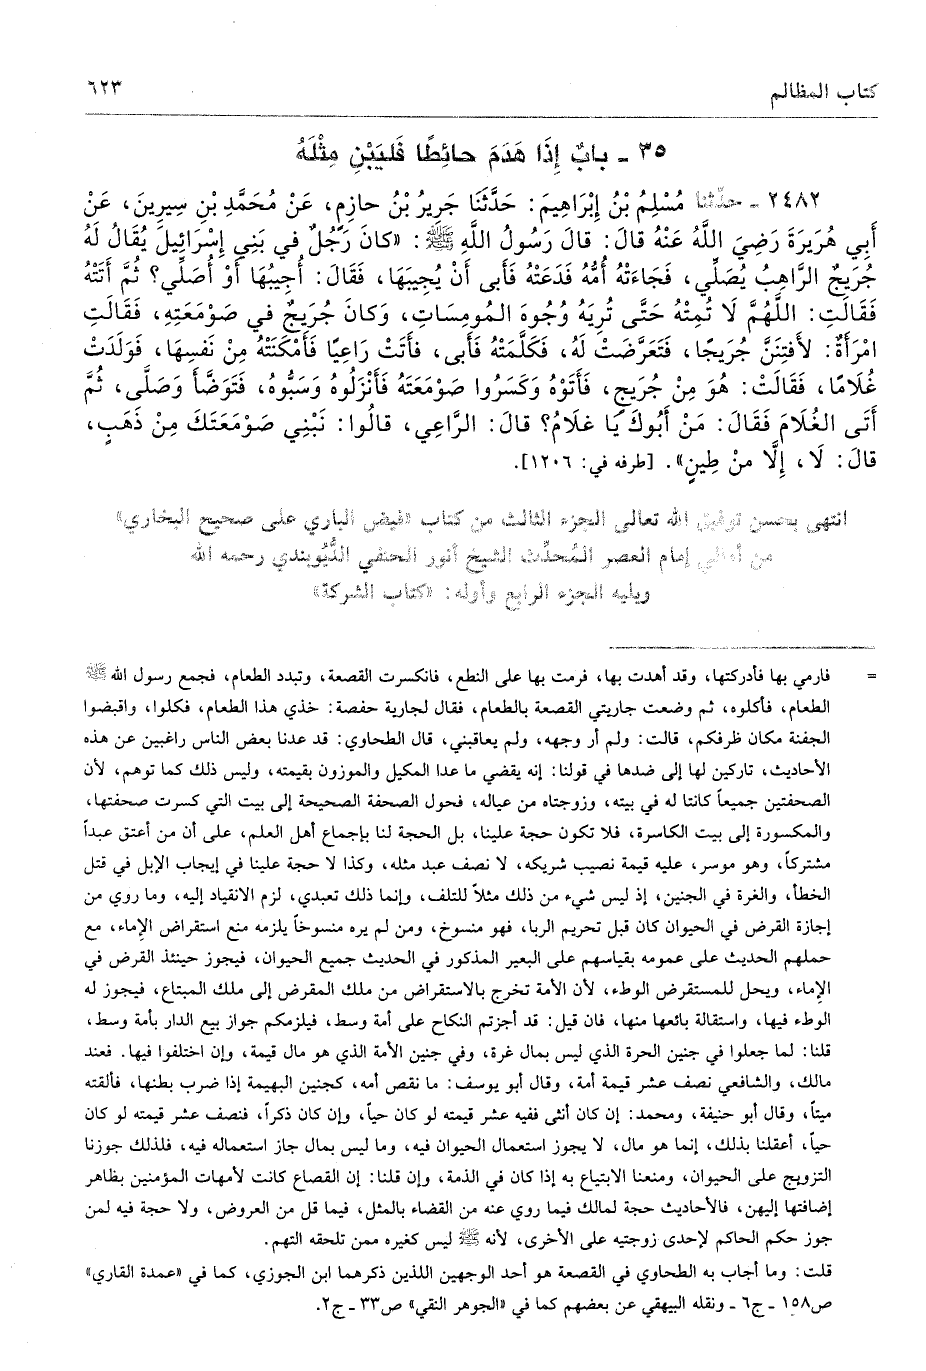 كتاب المظالم
٦٢٣
٣٥ ـ بابٌ إِذَا هَدَمَ حائِطًا فَليَبْنِ مِثْلَهُ
٢٤٨٢ ـ حدّثنا مُسْلِمُ بْنُ إِبْرَاهِيمَ: حَدَّثَنَا جَرِيرُ بْنُ حازِمٍ، عَنْ مُحَمَّدِ بْنِ سِيرِينَ، عَنْ
أَبِي هُرَيرَةَ رَضِيَ اللَّهُ عَنْهُ قالَ: قالَ رَسُولُ اللَّهِ ﷺ: «كانَ رَجُلٌ في بَنِي إِسْرَائِيلَ يُقَالُ لَهُ
جُرَيجٌ الرَّاهِبُ يُصَلِّي، فَجَاءَتْهُ أُمُّهُ فَدَعَتْهُ فَأَبى أَنْ يُجِيبَهَا، فَقَالَ: أُجِيبُهَا أَوْ أُصَلِّي؟ ثُمَّ أَتَتْهُ
فَقَالَتِ: اللَّهُمَّ لَا تُمِتْهُ حَتَّى تُرِيَهُ وُجُوهَ المُومِسَاتِ، وَكانَ جُرَيجٌ في صَوْمَعَتِهِ، فَقَالَتِ
امْرَأَةٌ: لأَفتِنَنَّ جُرَيجًا، فَتَعَرَّضَتْ لَهُ، فَكَلَّمَتْهُ فَأَبى، فَأَتَتْ رَاعِيًا فَأَمْكَنَتْهُ مِنْ نَفسِهَا، فَوَلَدَتْ
غُلَامًا، فَقَالَتْ: هُوَ مِنْ جُرَيجٍ، فَأَتَوْهُ وَكَسَرُوا صَوْمَعَتَهُ فَأَنْزَلُوهُ وَسَبُّوهُ، فَتَوَضَّأَ وَصَلَّى، ثُمَّ
أَتَى الغُلَامَ فَقَالَ: مَنْ أَبُوكَ يَا غلَامُ؟ قالَ: الرَّاعِي، قالُوا: نَبْنِي صَوْمَعَتَكَ مِنْ ذَهَبٍ،
قالَ: لَا، إِلَّا منْ طِينٍ». [طرفه في: ١٢٠٦].
انتهى بحسن توفيق الله تعالى الجزء الثالث من كتاب «فيض الباري على صحيح البخاري»
من أمالي إمام العصر المُحدِّث الشيخ أنور الحنفي الدُّيوبندي رحمه الله
ويليه الجزء الرابع وأوله: «كتاب الشركة»
= فارمي بها فأدركتها، وقد أهدت بها، فرمت بها على النطع، فانكسرت القصعة، وتبدد الطعام، فجمع رسول الله ﷺ
الطعام، فأكلوه، ثم وضعت جاريتي القصعة بالطعام، فقال لجارية حفصة: خذي هذا الطعام، فكلوا، واقبضوا
الجفنة مكان ظرفكم، قالت: ولم أر وجهه، ولم يعاقبني، قال الطحاوي: قد عدنا بعض الناس راغبين عن هذه
الأحاديث، تاركين لها إلى ضدها في قولنا: إنه يقضي ما عدا المكيل والموزون بقيمته، وليس ذلك كما توهم، لأن
الصحفتين جميعاً كانتا له في بيته، وزوجتاه من عياله، فحول الصحفة الصحيحة إلى بيت التي كسرت صحفتها،
والمكسورة إلى بيت الكاسرة، فلا تكون حجة علينا، بل الحجة لنا بإجماع أهل العلم، على أن من أعتق عبداً
مشتركاً، وهو موسر، عليه قيمة نصيب شريكه، لا نصف عبد مثله، وكذا لا حجة علينا في إيجاب الإبل في قتل
الخطأ، والغرة في الجنين، إذ ليس شيء من ذلك مثلاً للتلف، وإنما ذلك تعبدي، لزم الانقياد إليه، وما روي من
إجازة القرض في الحيوان كان قبل تحريم الربا، فهو منسوخ، ومن لم يره منسوخاً يلزمه منع استقراض الإماء، مع
حملهم الحديث على عمومه بقياسهم على البعير المذكور في الحديث جميع الحيوان، فيجوز حينئذ القرض في
الإماء، ويحل للمستقرض الوطء، لأن الأمة تخرج بالاستقراض من ملك المقرض إلى ملك المبتاع، فيجوز له
الوطء فيها، واستقالة بائعها منها، فان قيل: قد أجزتم النكاح على أمة وسط، فيلزمكم جواز بيع الدار بأمة وسط،
قلنا: لما جعلوا في جنين الحرة الذي ليس بمال غرة، وفي جنين الأمة الذي هو مال قيمة، وإن اختلفوا فيها. فعند
مالك، والشافعي نصف عشر قيمة أمة، وقال أبو يوسف: ما نقص أمه، كجنين البهيمة إذا ضرب بطنها، فألقته
ميتاً، وقال أبو حنيفة، ومحمد: إن كان أنثى ففيه عشر قيمته لو كان حياً، وإن كان ذكراً، فنصف عشر قيمته لو كان
حياً، أعقلنا بذلك، إنما هو مال، لا يجوز استعمال الحيوان فيه، وما ليس بمال جاز استعماله فيه، فلذلك جوزنا
التزويج على الحيوان، ومنعنا الابتياع به إذا كان في الذمة، وإن قلنا: إن القصاع كانت لأمهات المؤمنين بظاهر
إضافتها إليهن، فالأحاديث حجة لمالك فيما روي عنه من القضاء بالمثل، فيما قل من العروض، ولا حجة فيه لمن
جوز حكم الحاكم لإحدى زوجتيه على الأخرى، لأنه ﷺ ليس كغيره ممن تلحقه التهم.
قلت: وما أجاب به الطحاوي في القصعة هو أحد الوجهين اللذين ذكرهما ابن الجوزي، كما في «عمدة القاري»
ص١٥٨ ـ ج٦ ـ ونقله البيهقي عن بعضهم كما في «الجوهر النقي» ص٣٣ ـ ج٢.